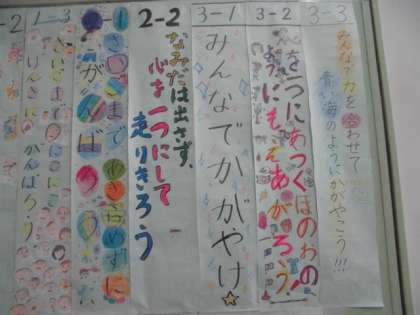 -2
1-3
さいごまでにこにこ
げんきにがんばろう
-1
さいごまであきらめずに
がんば
2-2
なみだは出さず、
心を一つにして
走りきろう
3-1
みんなでかがやけ☆
3-2
を一つにあつくほのおの
ようにもえあがろう!
3-3
みんなで力を合わせて
青い海のようにかがやこう!!!